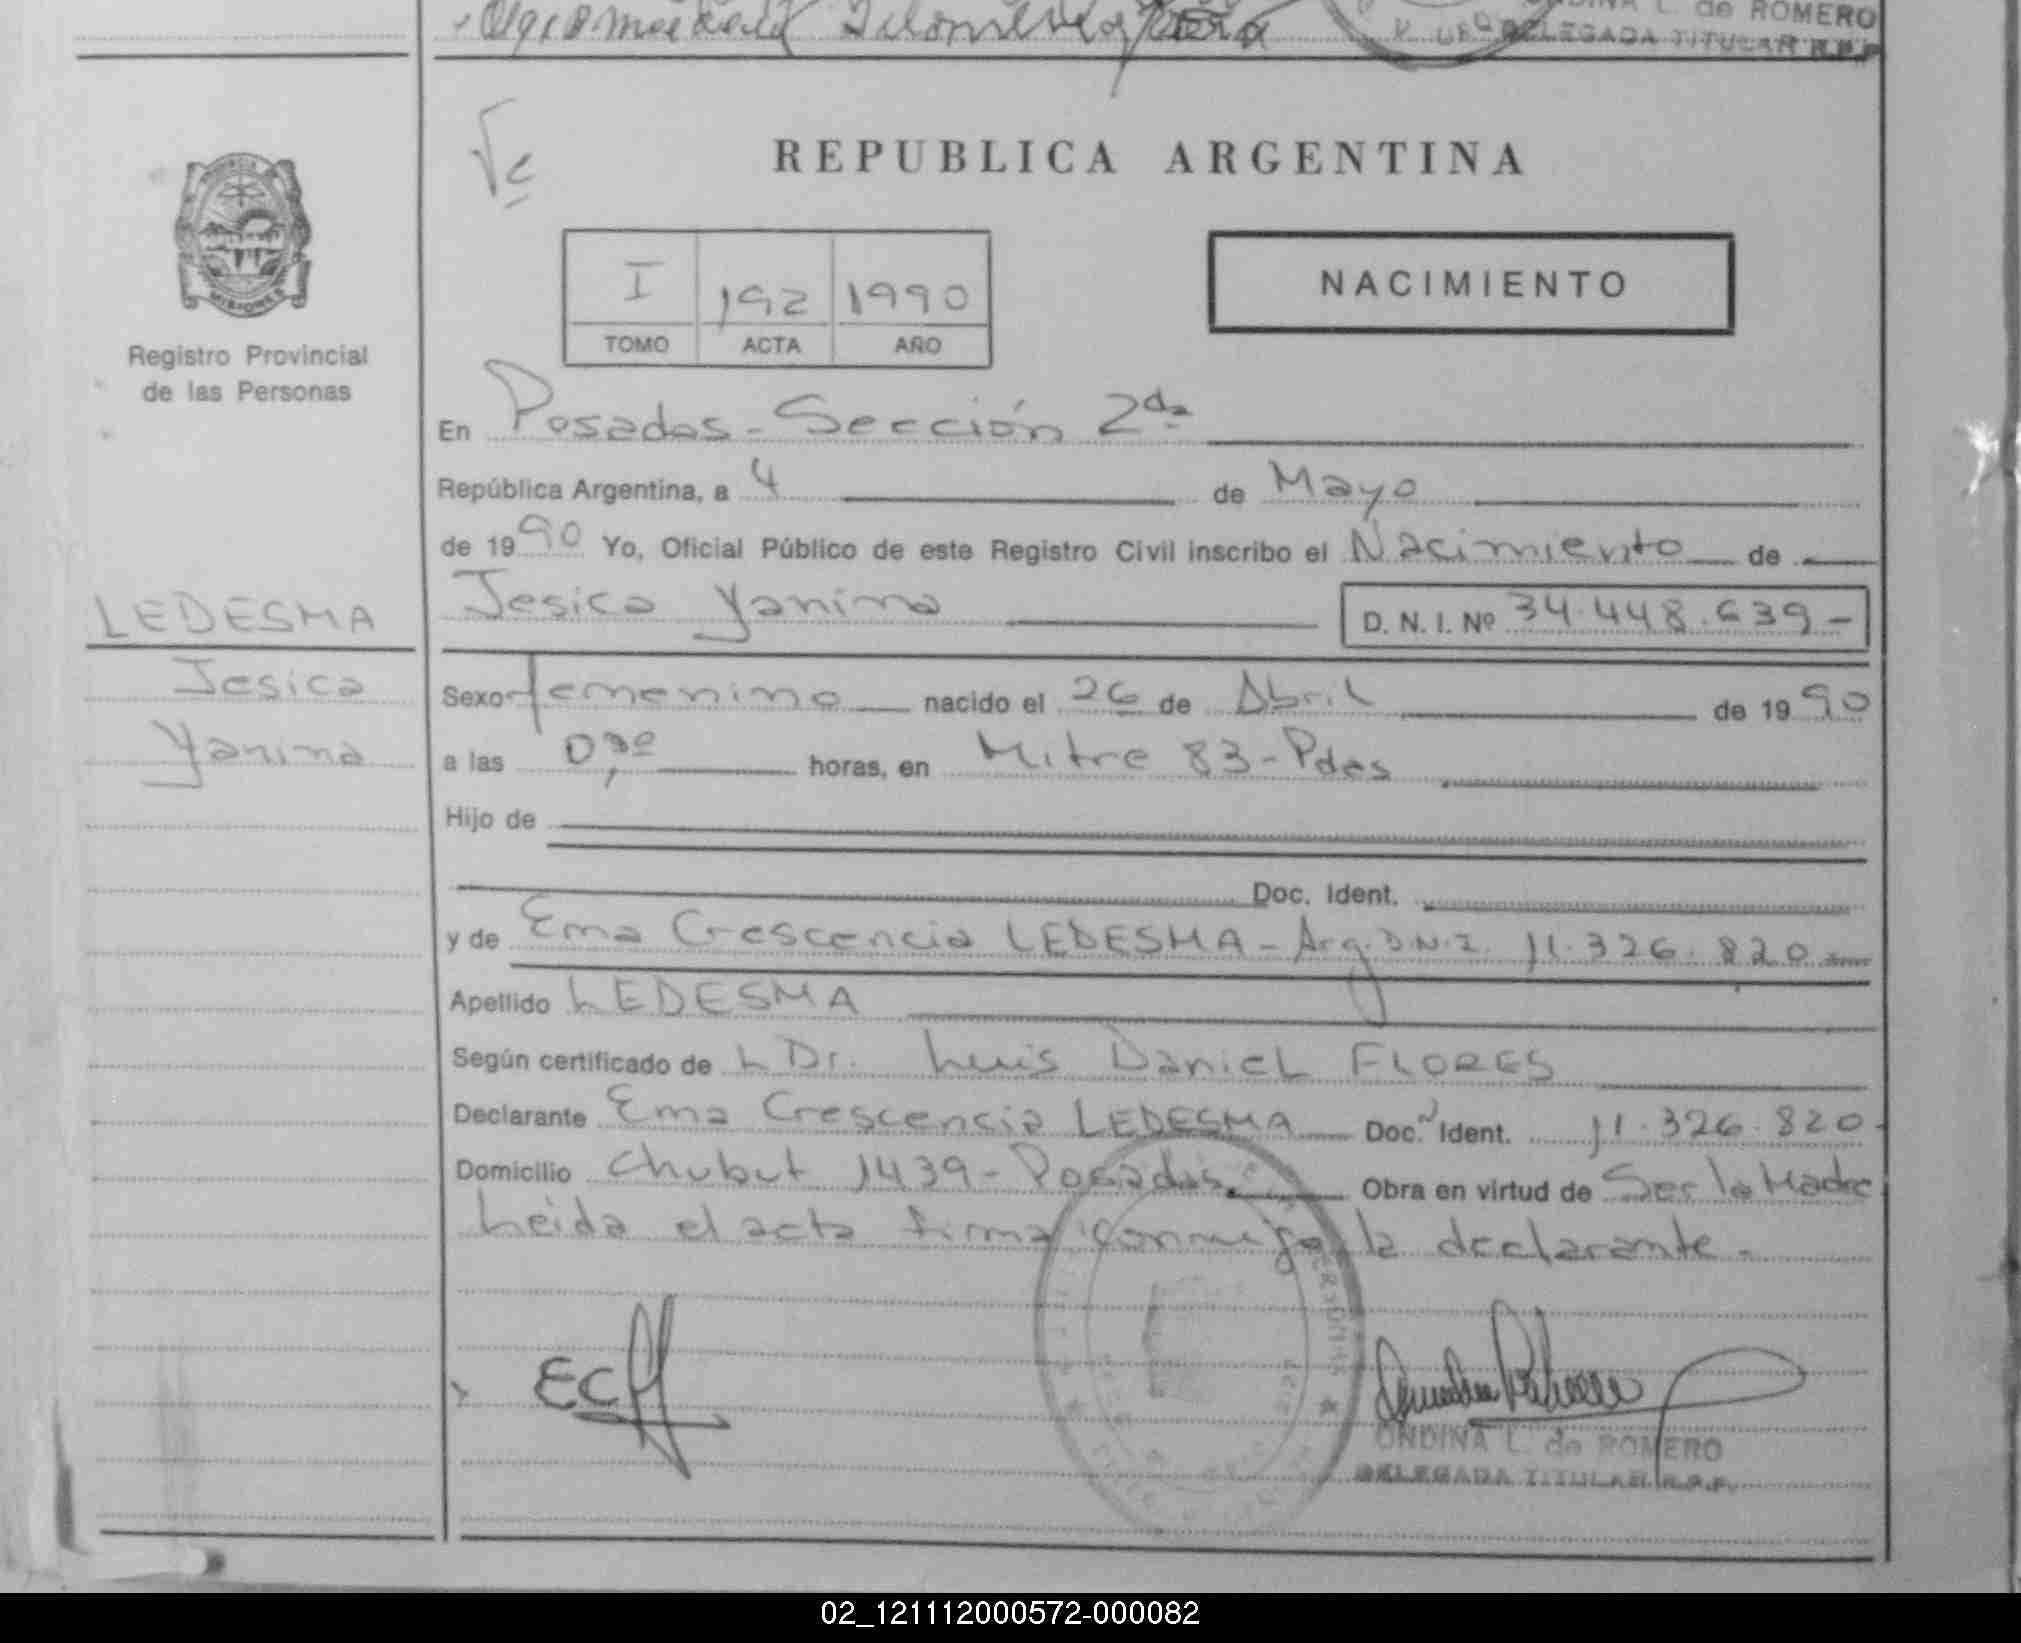 ONDINA L. de ROMERO
DELEGADA TITULAR R.P.P.
PROVINCIA
MISIONES
Registro Provincial
de las Personas
REPUBLICA ARGENTINA
I 192 1990
TOMO ACTA AÑO
NACIMIENTO
En Posadas - Sección 2da
República Argentina, a 4 de Mayo
de 1990 Yo, Oficial Público de este Registro Civil inscribo el Nacimiento de
LEDESMA
Jesica Yanina D. N. I. Nº 34.448.639-
Jesica
Yanina
Sexo femenino nacido el 26 de Abril de 1990
a las horas, en Mitre 83 - Pdas
Hijo de
Doc. Ident.
y de Ema Crescencia LEDESMA - Arg. D.N.I. 11.326.820
Apellido LEDESMA
Según certificado de L Dr. Luis Daniel FLORES
Declarante Ema Crescencia LEDESMA Doc. Ident. 11.326.820-
Domicilio Chubut 1439 - Posadas. Obra en virtud de Ser la Madre
Leida el acta firma conmigo la declarante.
ONDINA L. de ROMERO
DELEGADA TITULAR R.P.P.
02_121112000572-000082